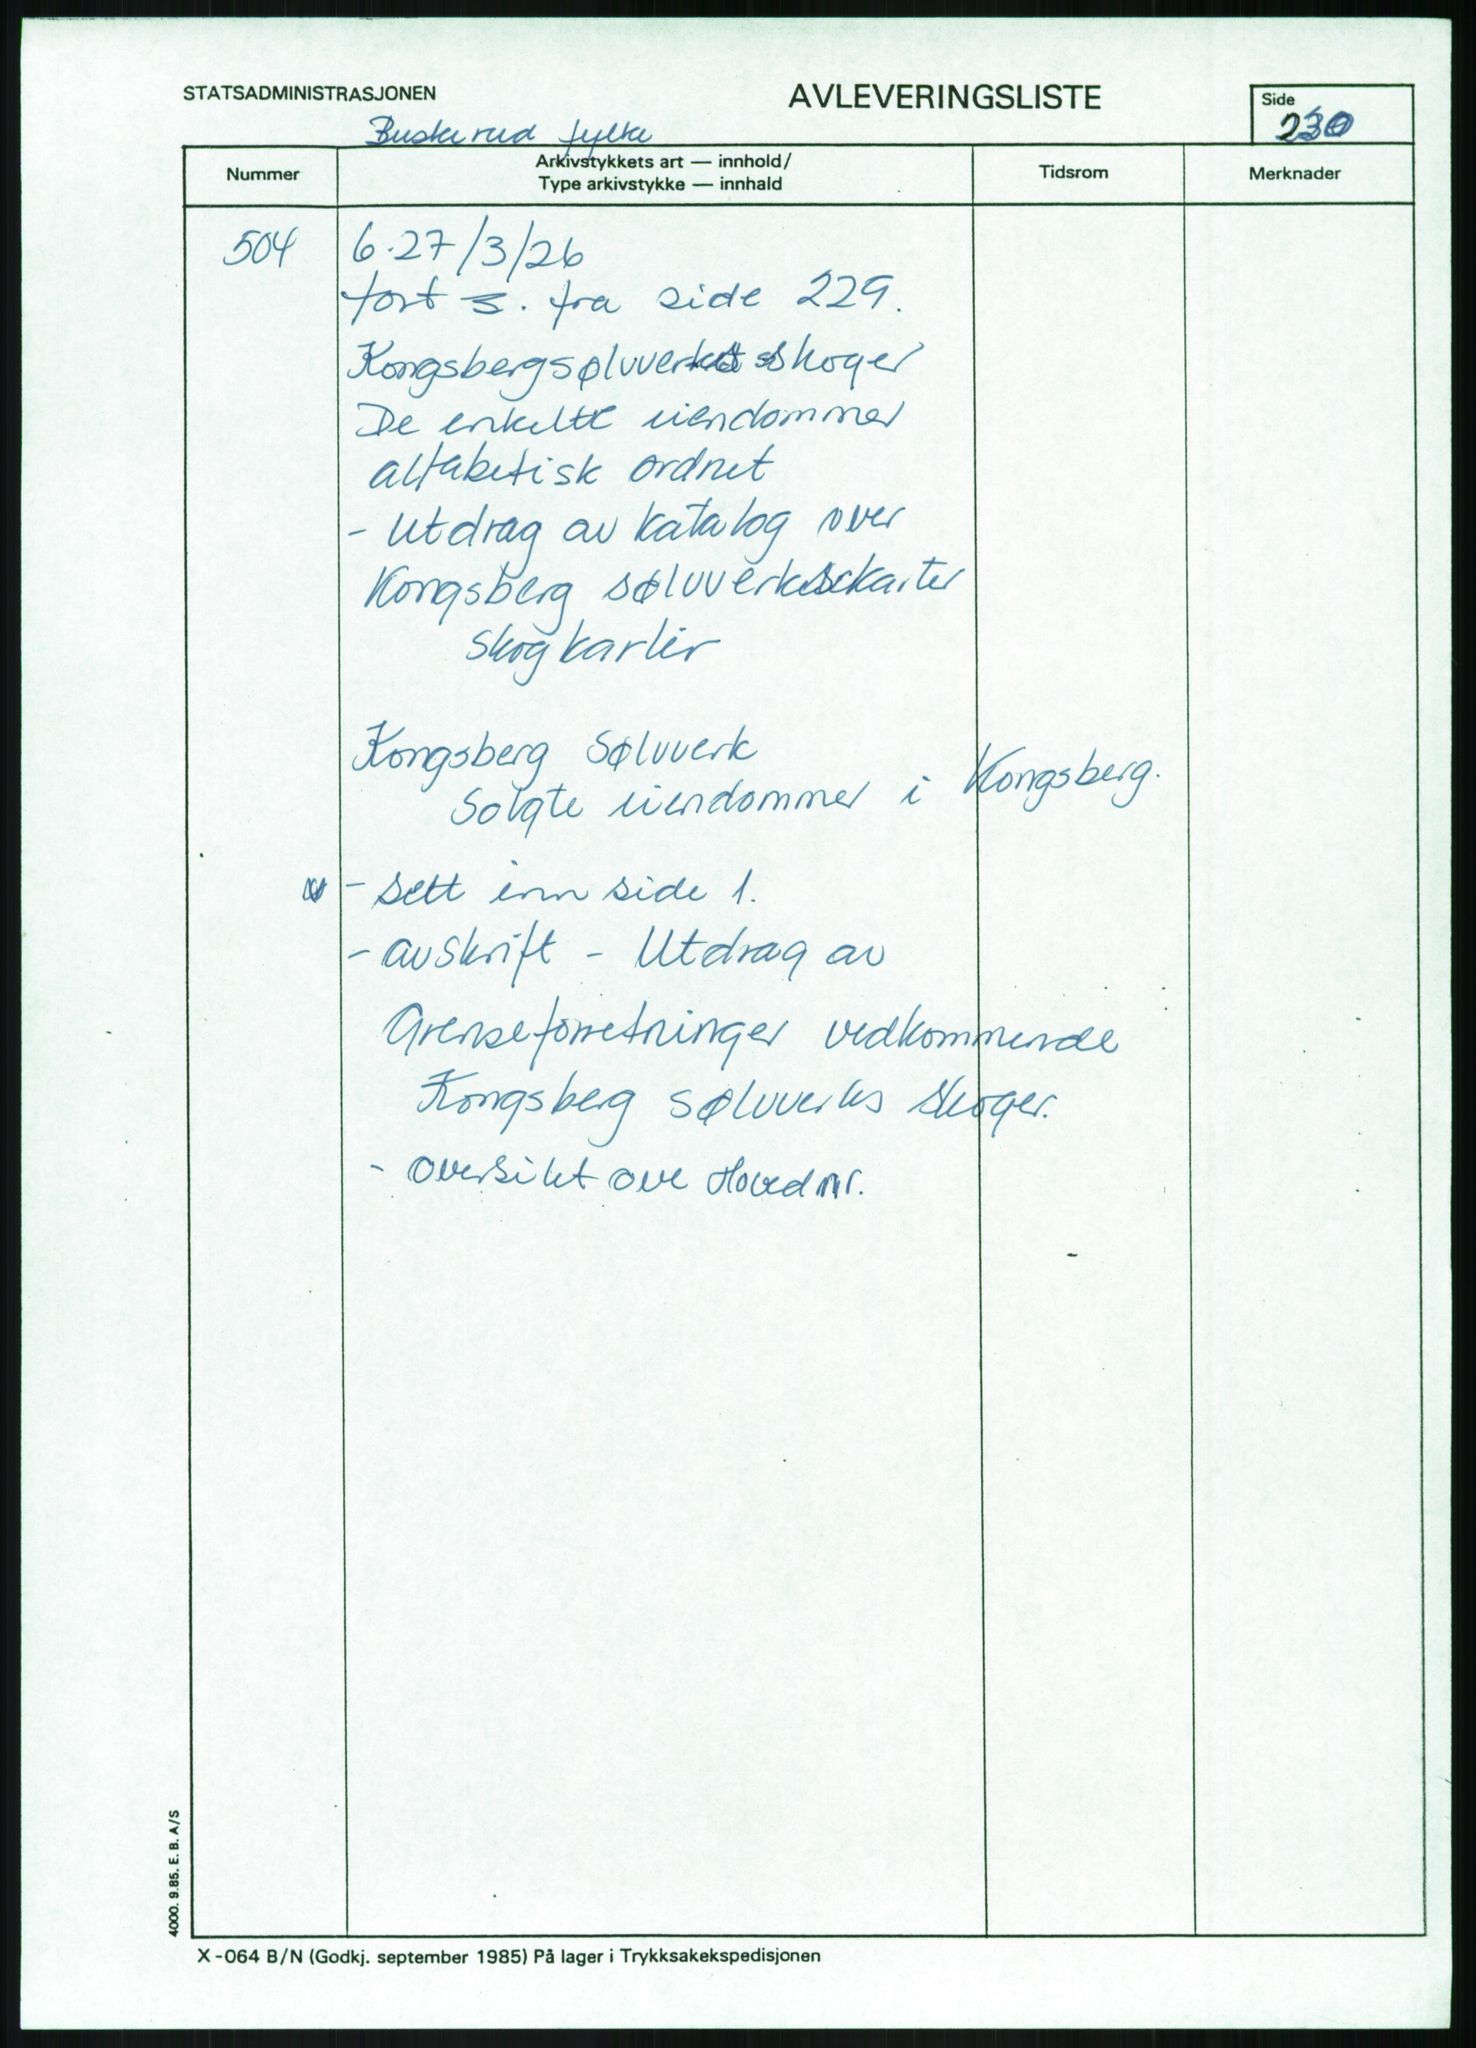 STATSADMINISTRASJONEN
AVLEVERINGSLISTE
Side
230
Buskerud fylke
Nummer
Arkivstykkets art — innhold/
Type arkivstykke — innhald
Tidsrom
Merknader
504
6.27/3/26
fort s. fra side 229.
Kongsbergsølvverkets skoger
De enkelte eiendommer
alfabetisk ordnet
- Utdrag av katalog over
Kongsberg sølvverkskarter
skogkarter
Kongsberg Sølvverk
Solgte eiendommer i Kongsberg.
- sett inn side 1.
- avskrift - Utdrag av
Grenseforretninger vedkommende
Kongsberg sølvverks skoger.
- oversikt ove Hovednr.
4000. 9.85. E. B. A/S
X-064 B/N (Godkj. september 1985) På lager i Trykksakekspedisjonen